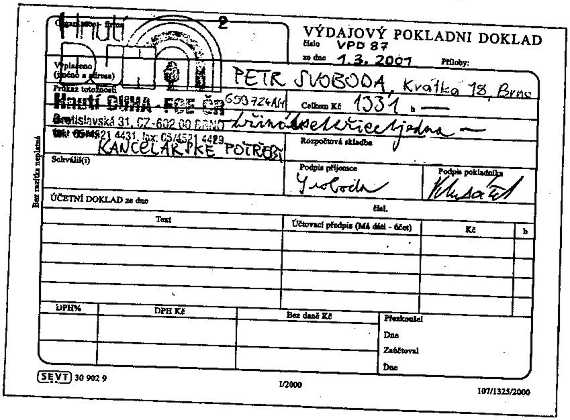 Hnutí
2
Organizace - firma
VÝDAJOVÝ POKLADNÍ DOKLAD
číslo VPD 87
ze dne 1.3.2001 Přílohy:
Vyplaceno
(jméno a adresa) PETR SVOBODA, Krátká 18, Brno
Průkaz totožnosti
Hnutí DUHA - FOE ČR Celkem Kč 1331 h —
Bratislavská 31, CZ-602 00 BRNO
Rozpočtová skladba
KANCELÁŘSKÉ POTŘEBY
Schválil(i) Podpis příjemce Podpis pokladníka
Svoboda
Bez razítka neplatné
ÚČETNÍ DOKLAD ze dne čísl.
Text Účtovací předpis (Má dáti - účet) Kč h
DPH% DPH Kč Bez daně Kč Přezkoušel
Dne
Zaúčtoval
Dne
SEVT 30 902 9 I/2000 107/1325/2000